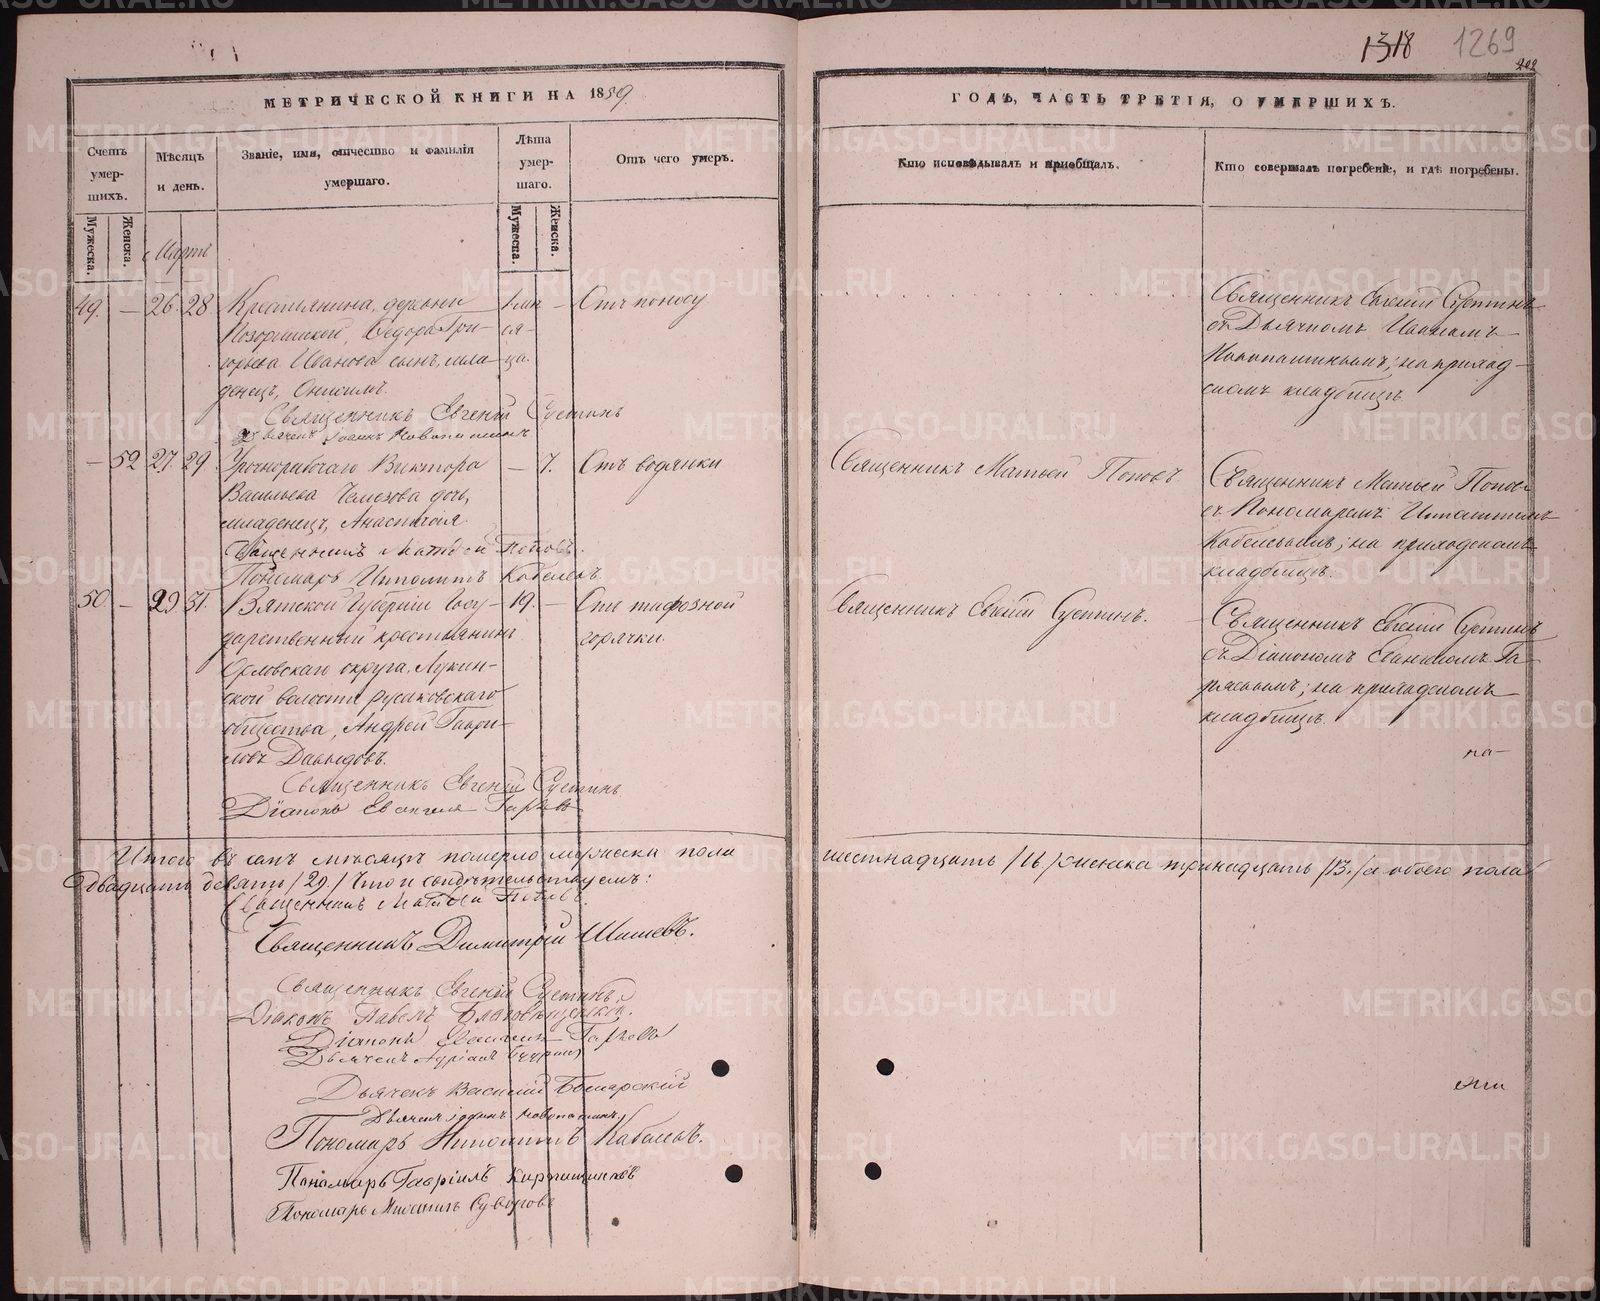 1318 1269
202
МЕТРИЧЕСКОЙ КНИГИ НА 1859
ГОДЪ, ЧАСТЬ ТРЕТІЯ, О УМЕРШИХЪ.
Счетъ умер-шихъ.
Мужеска.
Женска.
Мѣсяцъ и день.
Званіе, имя, отчество и фамилія умершаго.
Лѣта умер-шаго.
Мужеска.
Женска.
Отъ чего умеръ.
Кто исповѣдывалъ и приобщалъ.
Кто совершалъ погребеніе, и гдѣ погребены.
Мартъ
49. — 26 28
Крестьянина, деревни
Ѳедора Гри-
горьева Иванова сынъ, мла-
денецъ, Онисимъ.
Священникъ Евгеній Сустинъ
Дьячекъ Іоаннъ Новопашинъ
1 мѣ-
ся-
ца.
—
Отъ поносу
Священникъ Евгеній Сустинъ
съ Дьячкомъ Иваномъ
Новопашинымъ; на приход-
скомъ кладбищѣ.
— 52 27. 29
Урочнорабочаго Виктора
Васильева дочь,
младенецъ, Анастасія.
Священникъ Матѳей Поповъ.
Пономарь Ипполитъ Кабелевъ.
— 7.
Отъ водянки
Священникъ Матѳей Поповъ
Священникъ Матѳей Поповъ
съ Пономаремъ Ипполитомъ
Кабелевымъ; на приходскомъ
кладбищѣ.
50. — 29 31.
Вятской Губерніи Госу-
дарственный крестьянинъ
Орловскаго округа, Лукин-
ской волости Русаковскаго
общества, Андрей Гаври-
ловъ Давыдовъ.
Священникъ Евгеній Сустинъ
Діаконъ Евангелъ Гаряевъ
19. —
Отъ тифозной
горячки.
Священникъ Евгеній Сустинъ.
Священникъ Евгеній Сустинъ
съ Діакономъ Евангеломъ Га-
ряевымъ; на приходскомъ
кладбищѣ.
на-
Итого въ семъ мѣсяцѣ померло мужеска пола
шестнадцать /16/ женска тринадцать /13./ а обоего пола
двадцать девять /29./ Что и свидѣтельствуемъ:
Священникъ Матѳей Поповъ.
Священникъ Димитрій Шишевъ.
Священникъ Евгеній Сустинъ.
Діаконъ Павелъ Благовѣщенскій.
Діаконъ Евангелъ Гаряевъ
Дьячекъ
Дьячекъ Василій
Дьячекъ Іоаннъ Новопашинъ.
Пономарь Ипполитъ Кабелевъ.
Пономарь Гавріилъ Кирпищиковъ
Пономарь Михаилъ Суворовъ
METRIKI.GASO-URAL.RU